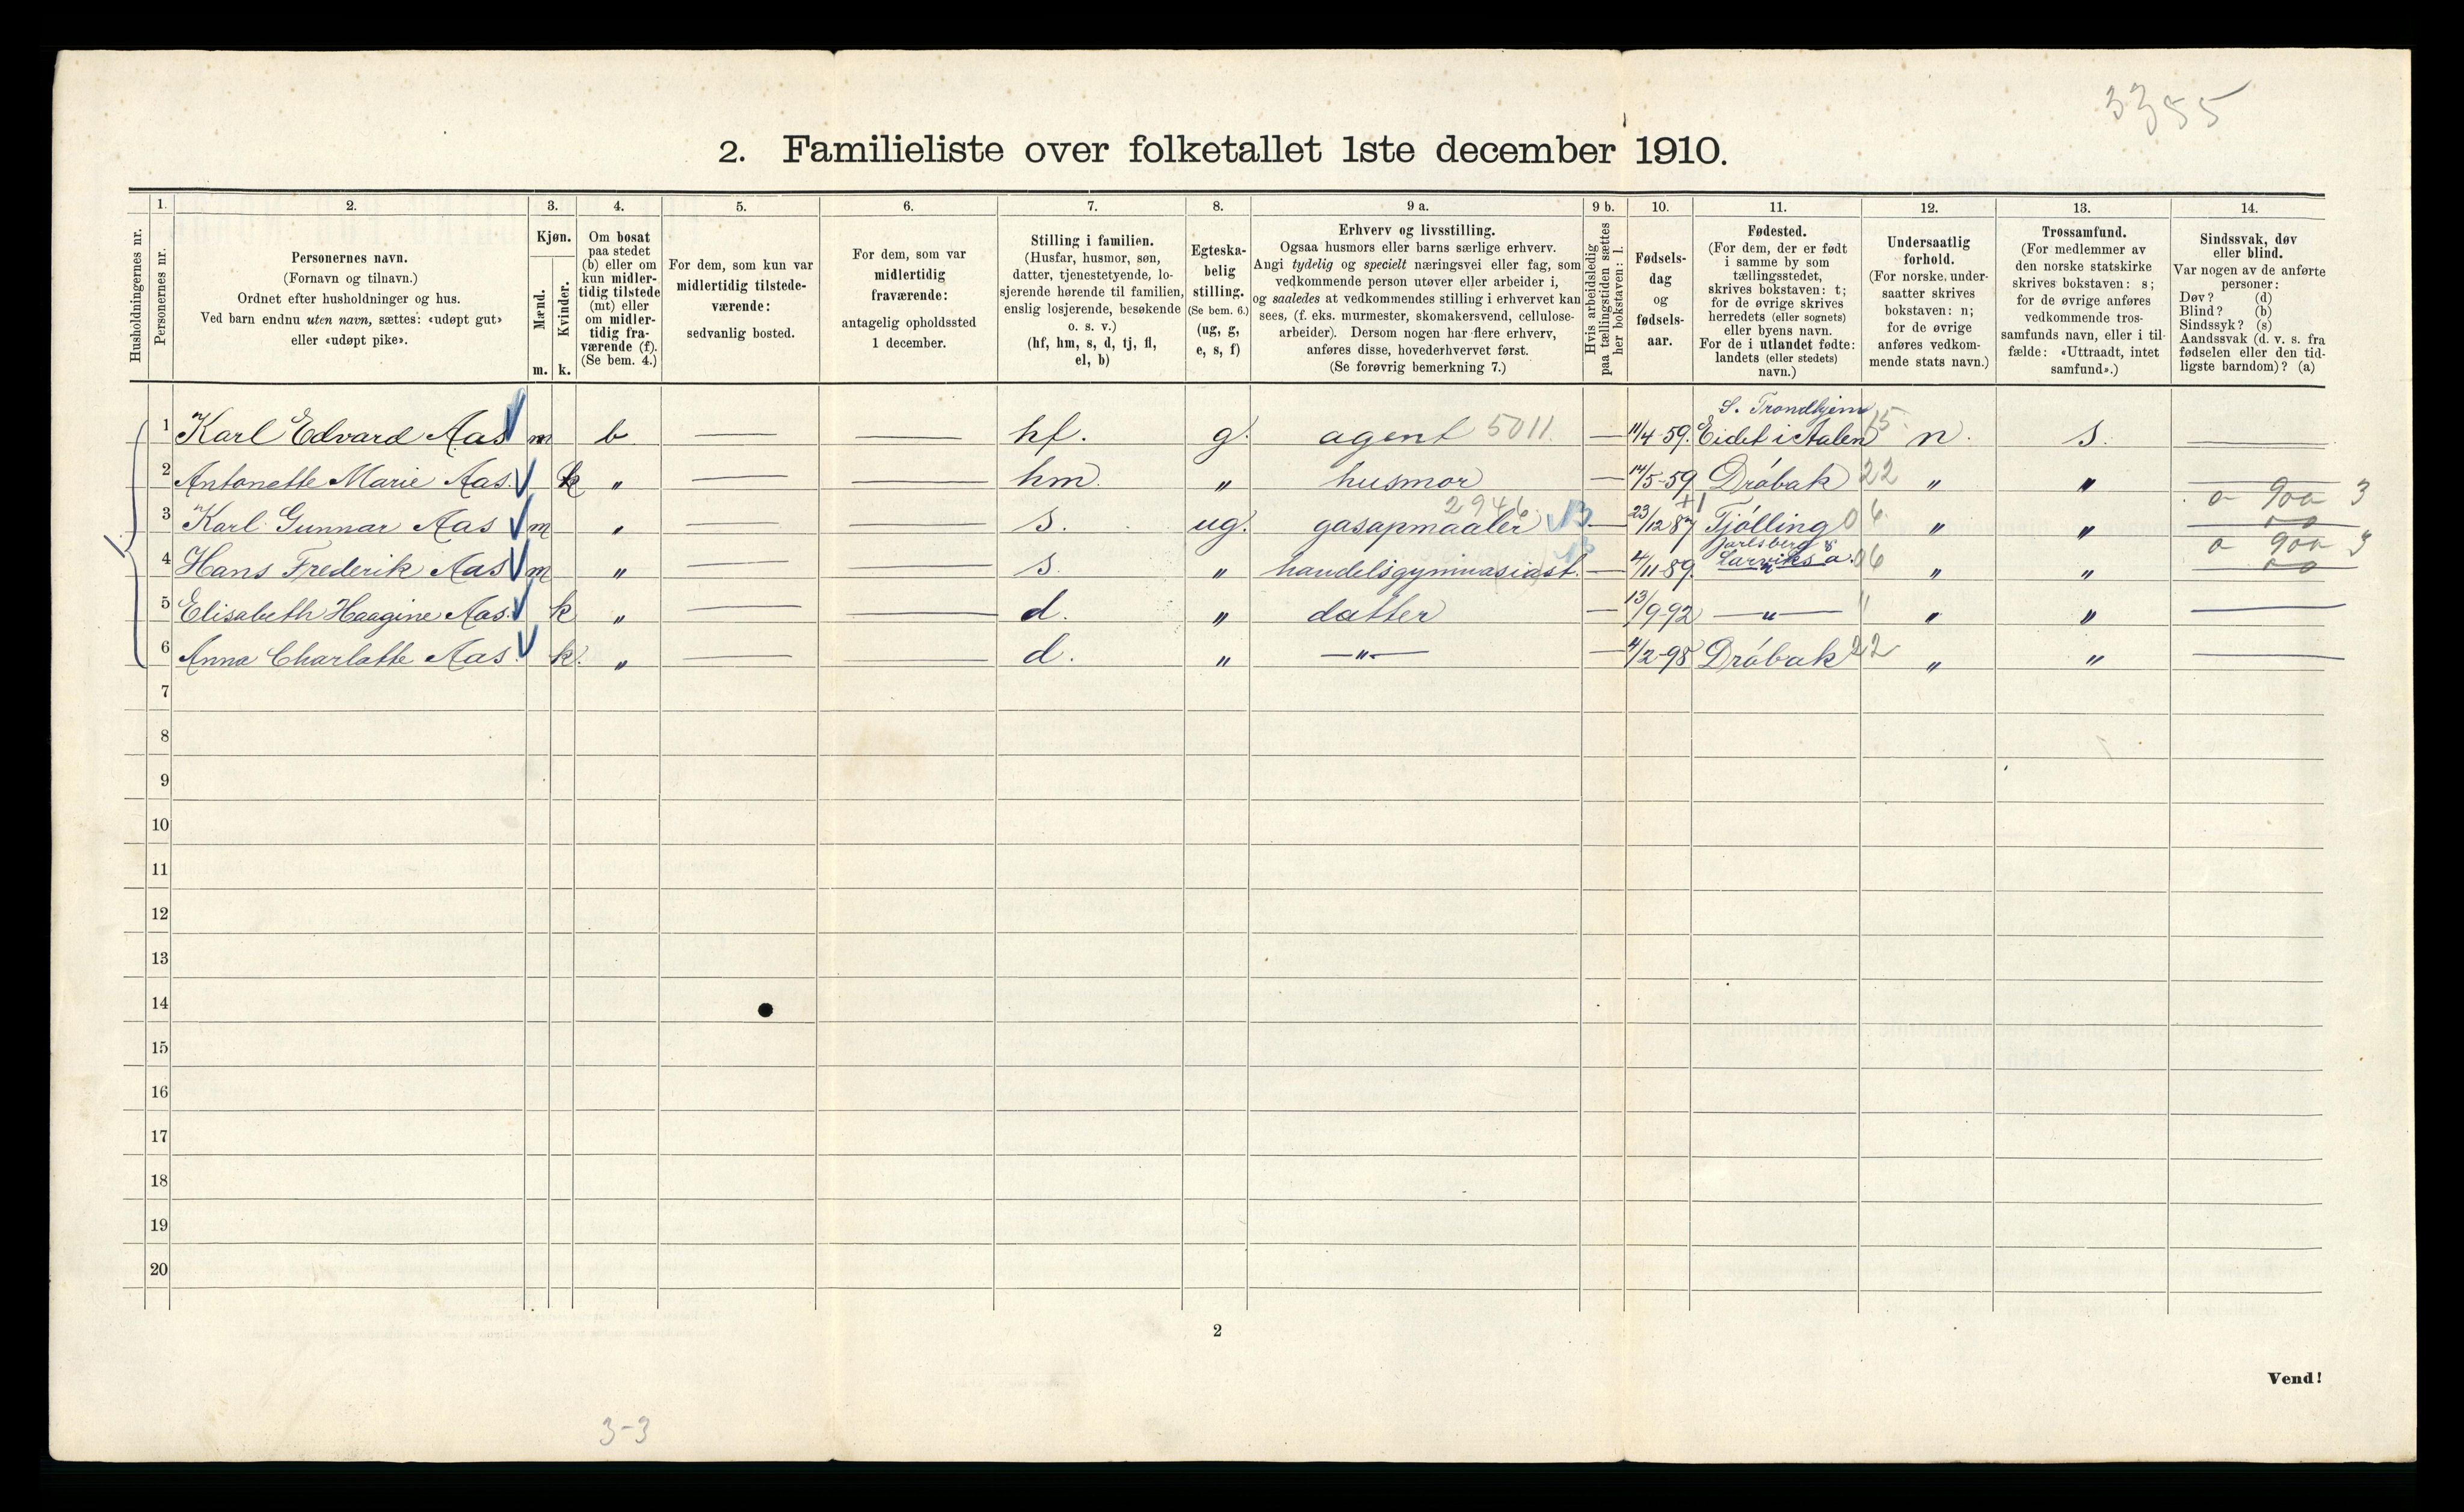 3355
2. Familieliste over folketallet 1ste december 1910.
Husholdningernes nr.
1.
Personernes nr.
2.
Personernes navn.
(Fornavn og tilnavn.)
Ordnet efter husholdninger og hus.
Ved barn endnu uten navn, sættes: «udøpt gut»
eller «udøpt pike».
3.
Kjøn.
Mænd.
Kvinder.
m. k.
4.
Om bosat
paa stedet
(b) eller om
kun midler-
tidig tilstede
(mt) eller
om midler-
tidig fra-
værende (f).
(Se bem. 4.)
5.
For dem, som kun var
midlertidig tilstede-
værende:
sedvanlig bosted.
6.
For dem, som var
midlertidig
fraværende:
antagelig opholdssted
1 december.
7.
Stilling i familien.
(Husfar, husmor, søn,
datter, tjenestetyende, lo-
sjerende hørende til familien,
enslig losjerende, besøkende
o. s. v.)
(hf, hm, s, d, tj, fl,
el, b)
8.
Egteska-
belig
stilling.
(Se bem. 6.)
(ug, g,
e, s, f)
9 a.
Erhverv og livsstilling.
Ogsaa husmors eller barns særlige erhverv.
Angi tydelig og specielt næringsvei eller fag, som
vedkommende person utøver eller arbeider i,
og saaledes at vedkommendes stilling i erhvervet kan
sees, (f. eks. murmester, skomakersvend, cellulose-
arbeider). Dersom nogen har flere erhverv,
anføres disse, hovederhvervet først.
(Se forøvrig bemerkning 7.)
9 b.
Hvis arbeidsledig
paa tællingstiden sættes
her bokstaven: l.
10.
Fødsels-
dag
og
fødsels-
aar.
11.
Fødested.
(For dem, der er født
i samme by som
tællingsstedet,
skrives bokstaven: t;
for de øvrige skrives
herredets (eller sognets)
eller byens navn.
For de i utlandet fødte:
landets (eller stedets)
navn.)
12.
Undersaatlig
forhold.
(For norske under-
saatter skrives
bokstaven: n;
for de øvrige
anføres vedkom-
mende stats navn.)
13.
Trossamfund.
(For medlemmer av
den norske statskirke
skrives bokstaven: s;
for de øvrige anføres
vedkommende tros-
samfunds navn, eller i til-
fælde: «Uttraadt, intet
samfund».)
14.
Sindssvak, døv
eller blind.
Var nogen av de anførte
personer:
Døv? (d)
Blind? (b)
Sindssyk? (s)
Aandssvak (d. v. s. fra
fødselen eller den tid-
ligste barndom)? (a)
S. Trondhjem
1. 1 Karl Edvard Aas m b — — hf. g. agent 5011. — 11/4-59. Eidet i Aalen 15 n. s. —
2 Antonette Marie Aas. k " — — hm. " husmor — 14/5-59 Drøbak 22 " " —
2946 +1 0 900 3
3 Karl Gunnar Aas m " — — s. ug. gasapmaaler 13 — 23/12 87 Tjølling 06 " " —
Jarlsberg & 0 900 3
4 Hans Frederik Aas m " — — s. " handelsgymnasiast. — 4/11-89. Larviks a. 06 " " —
5 Elisabeth Haagine Aas. k " — — d. " datter — 13/9-92 —"— " " " —
6 Anna Charlotte Aas. k. " — — d. " —"— — 4/2-98 Drøbak 22 " " —
7
8
9
10
11
12
13
14
15
16
17
18
19
20
2
Vend!
3-3